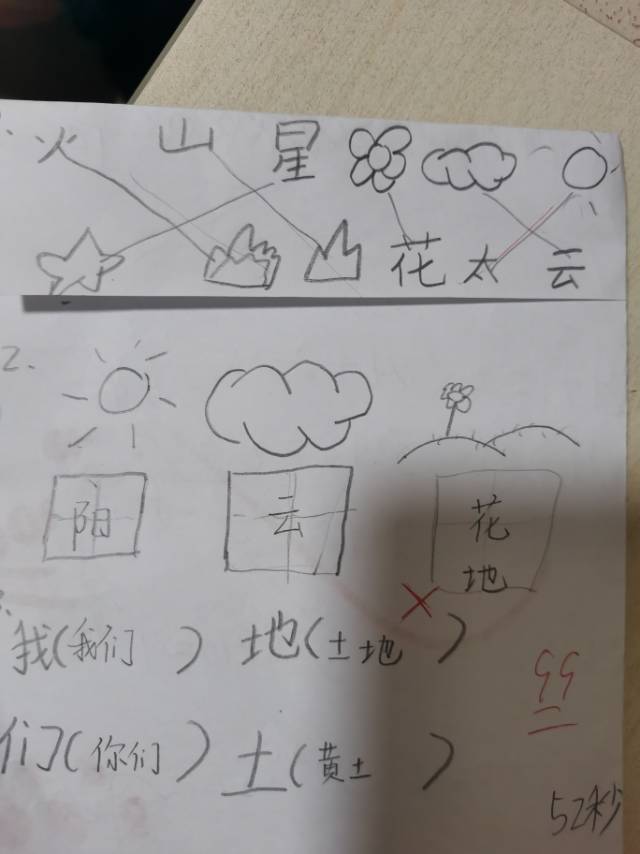 火 山 星
花 太 云
2.
阳 云 花
地
我(我们 ) 地(土地 )
们(你们 ) 土(黄土 )
99
52秒